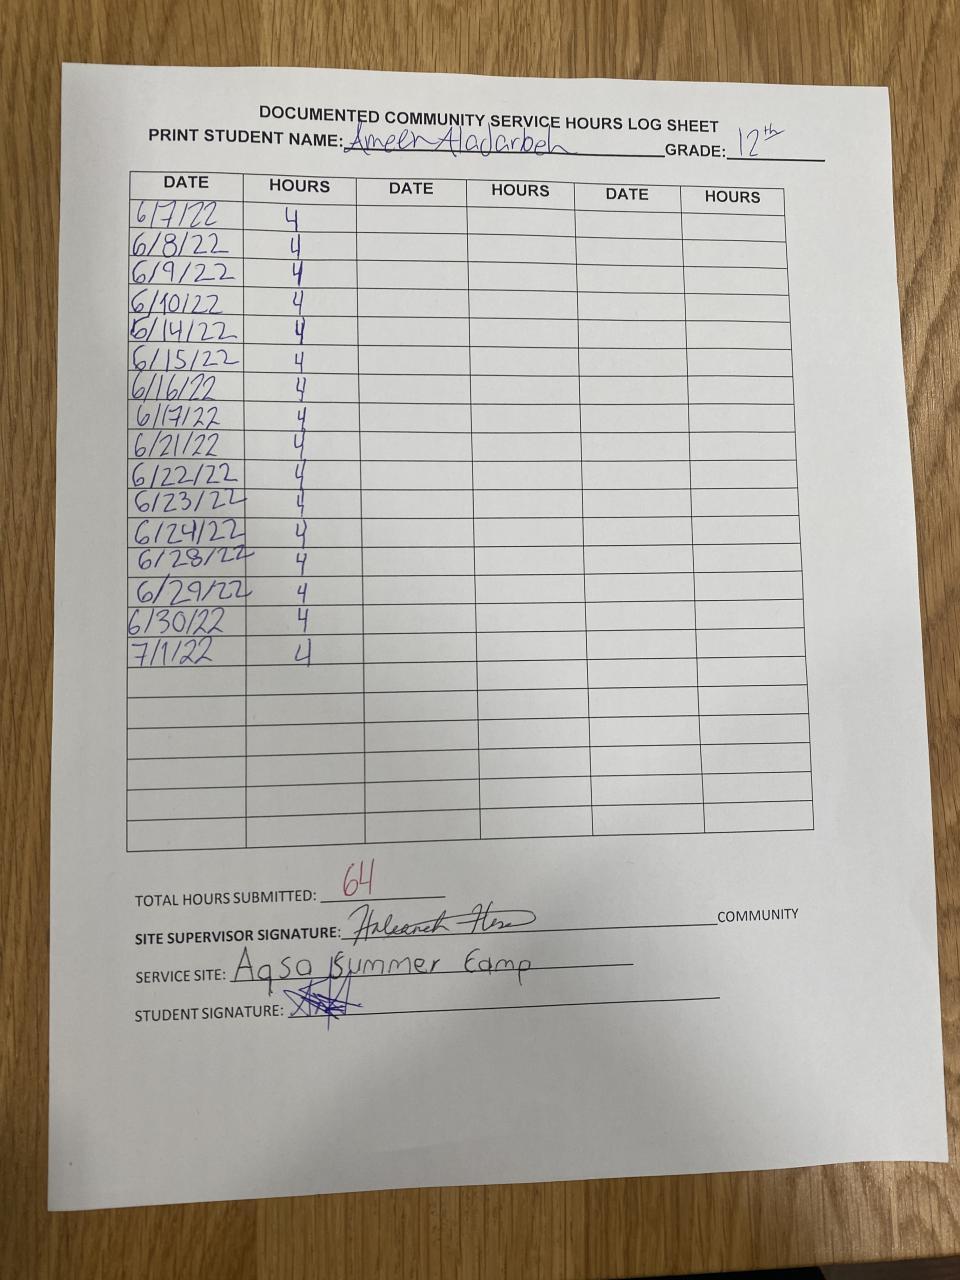 DOCUMENTED COMMUNITY SERVICE HOURS LOG SHEET
PRINT STUDENT NAME: Ameen Aladarbeh GRADE: 12th
DATE HOURS DATE HOURS DATE HOURS
6/7/22 4
6/8/22 4
6/9/22 4
6/10/22 4
6/14/22 4
6/15/22 4
6/16/22 4
6/17/22 4
6/21/22 4
6/22/22 4
6/23/22 4
6/24/22 4
6/28/22 4
6/29/22 4
6/30/22 4
7/1/22 4
TOTAL HOURS SUBMITTED: 64
SITE SUPERVISOR SIGNATURE: COMMUNITY
SERVICE SITE: Aqsa Summer Camp
STUDENT SIGNATURE: